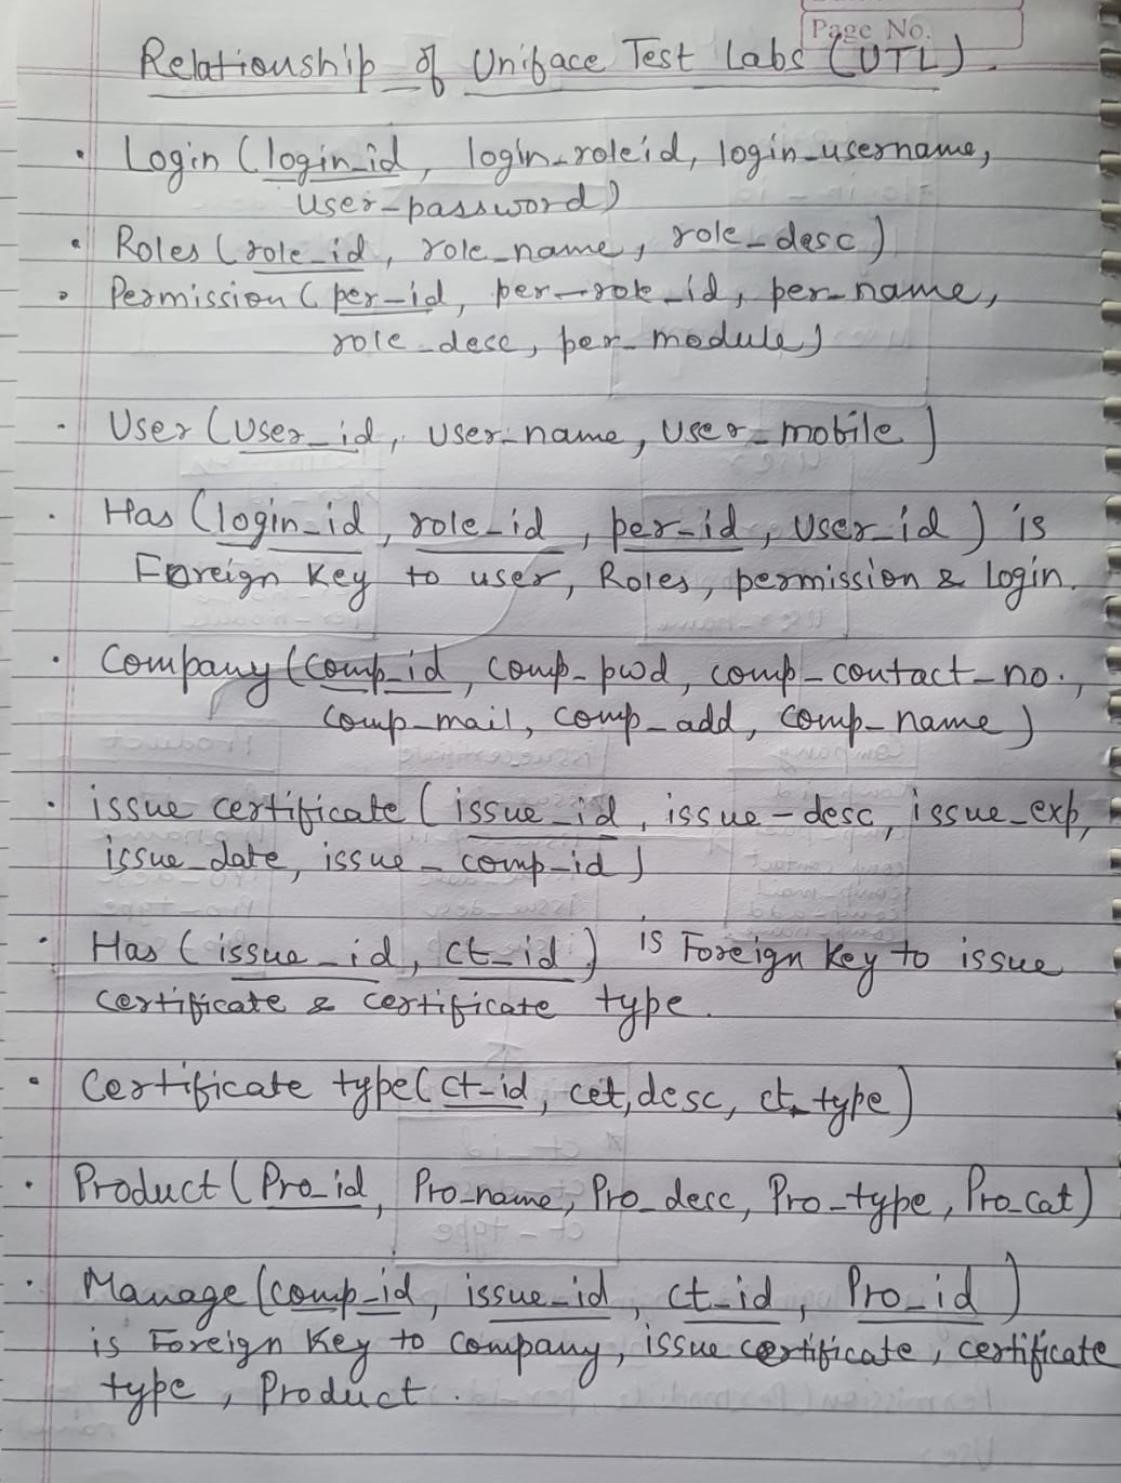 Page No.
Relationship of Uniface Test Labs (UTL).
• Login (login_id, login_roleid, login_username,
user_password)
• Roles (role_id, role_name, role_desc)
• Permission (per_id, per_role_id, per_name,
role_desc, per_module)
• User (User_id, user_name, user_mobile)
• Has (login_id, role_id, per_id, user_id) is
Foreign Key to user, Roles, permission & login.
• Company (comp_id, comp_pwd, comp_contact_no.,
comp_mail, comp_add, comp_name)
• issue certificate (issue_id, issue_desc, issue_exp,
issue_date, issue_comp_id)
• Has (issue_id, ct_id) is Foreign Key to issue
certificate & certificate type.
• Certificate type (ct_id, cet,desc, ct_type)
• Product (Pro_id, Pro_name, Pro_desc, Pro_type, Pro_cat)
• Manage (comp_id, issue_id, ct_id, Pro_id)
is Foreign Key to company, issue certificate, certificate
type, Product.